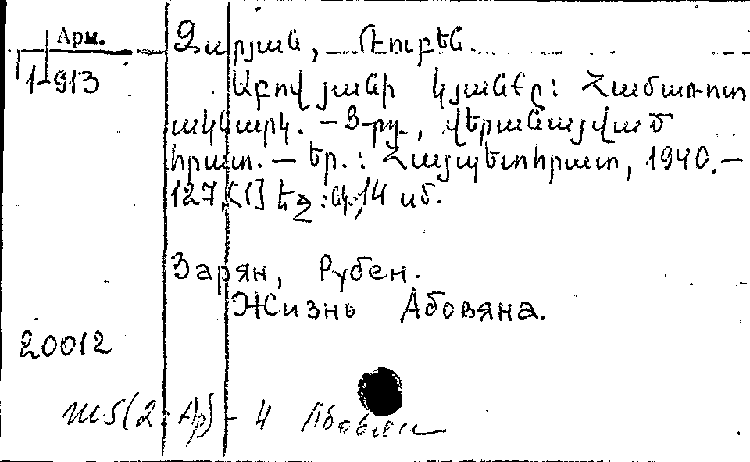 Арм.
1-913
Զարյան, Ռուբեն.
Աբովյանի կյանքը: Համառոտ
ակնարկ. – 3-րդ, վերանայված
հրատ. – Եր.: Հայպետհրատ, 1940. –
127,[1] էջ: 14 սմ.
Зарян, Рубен.
Жизнь Абовяна.
20012
Ш5(2=Ар)-4 Абовян